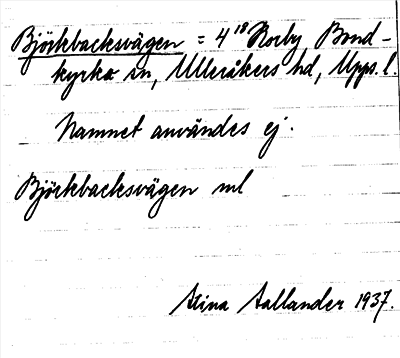 Björkbacksvägen = 4¹⁸ Norby, Bond-
kyrka sn, Ulleråkers hd, Upps. l.
Namnet användes ej.
Björkbacksvägen ml
Stina Sallander 1937.